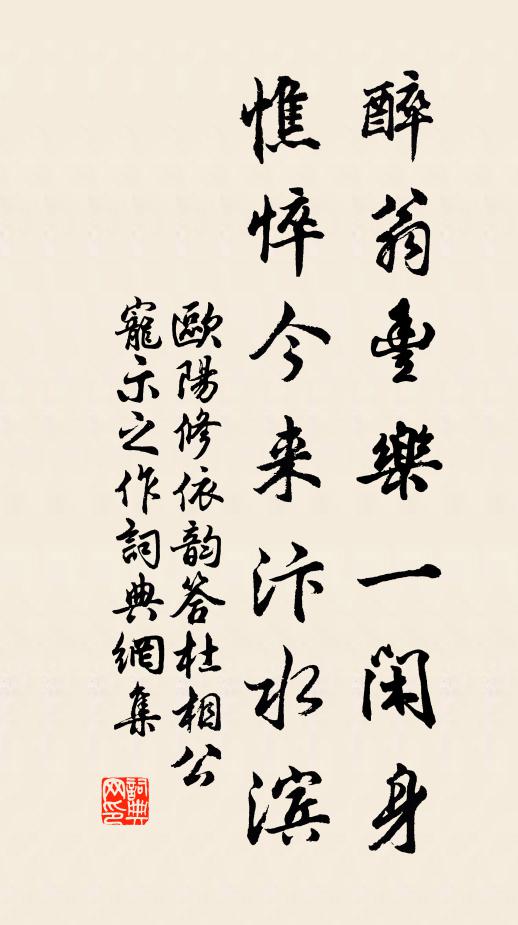 醉翁豐樂一閑身
憔悴今来汴水滨
歐陽修依韵答杜相公
寵示之作詞典網集
詞典网印